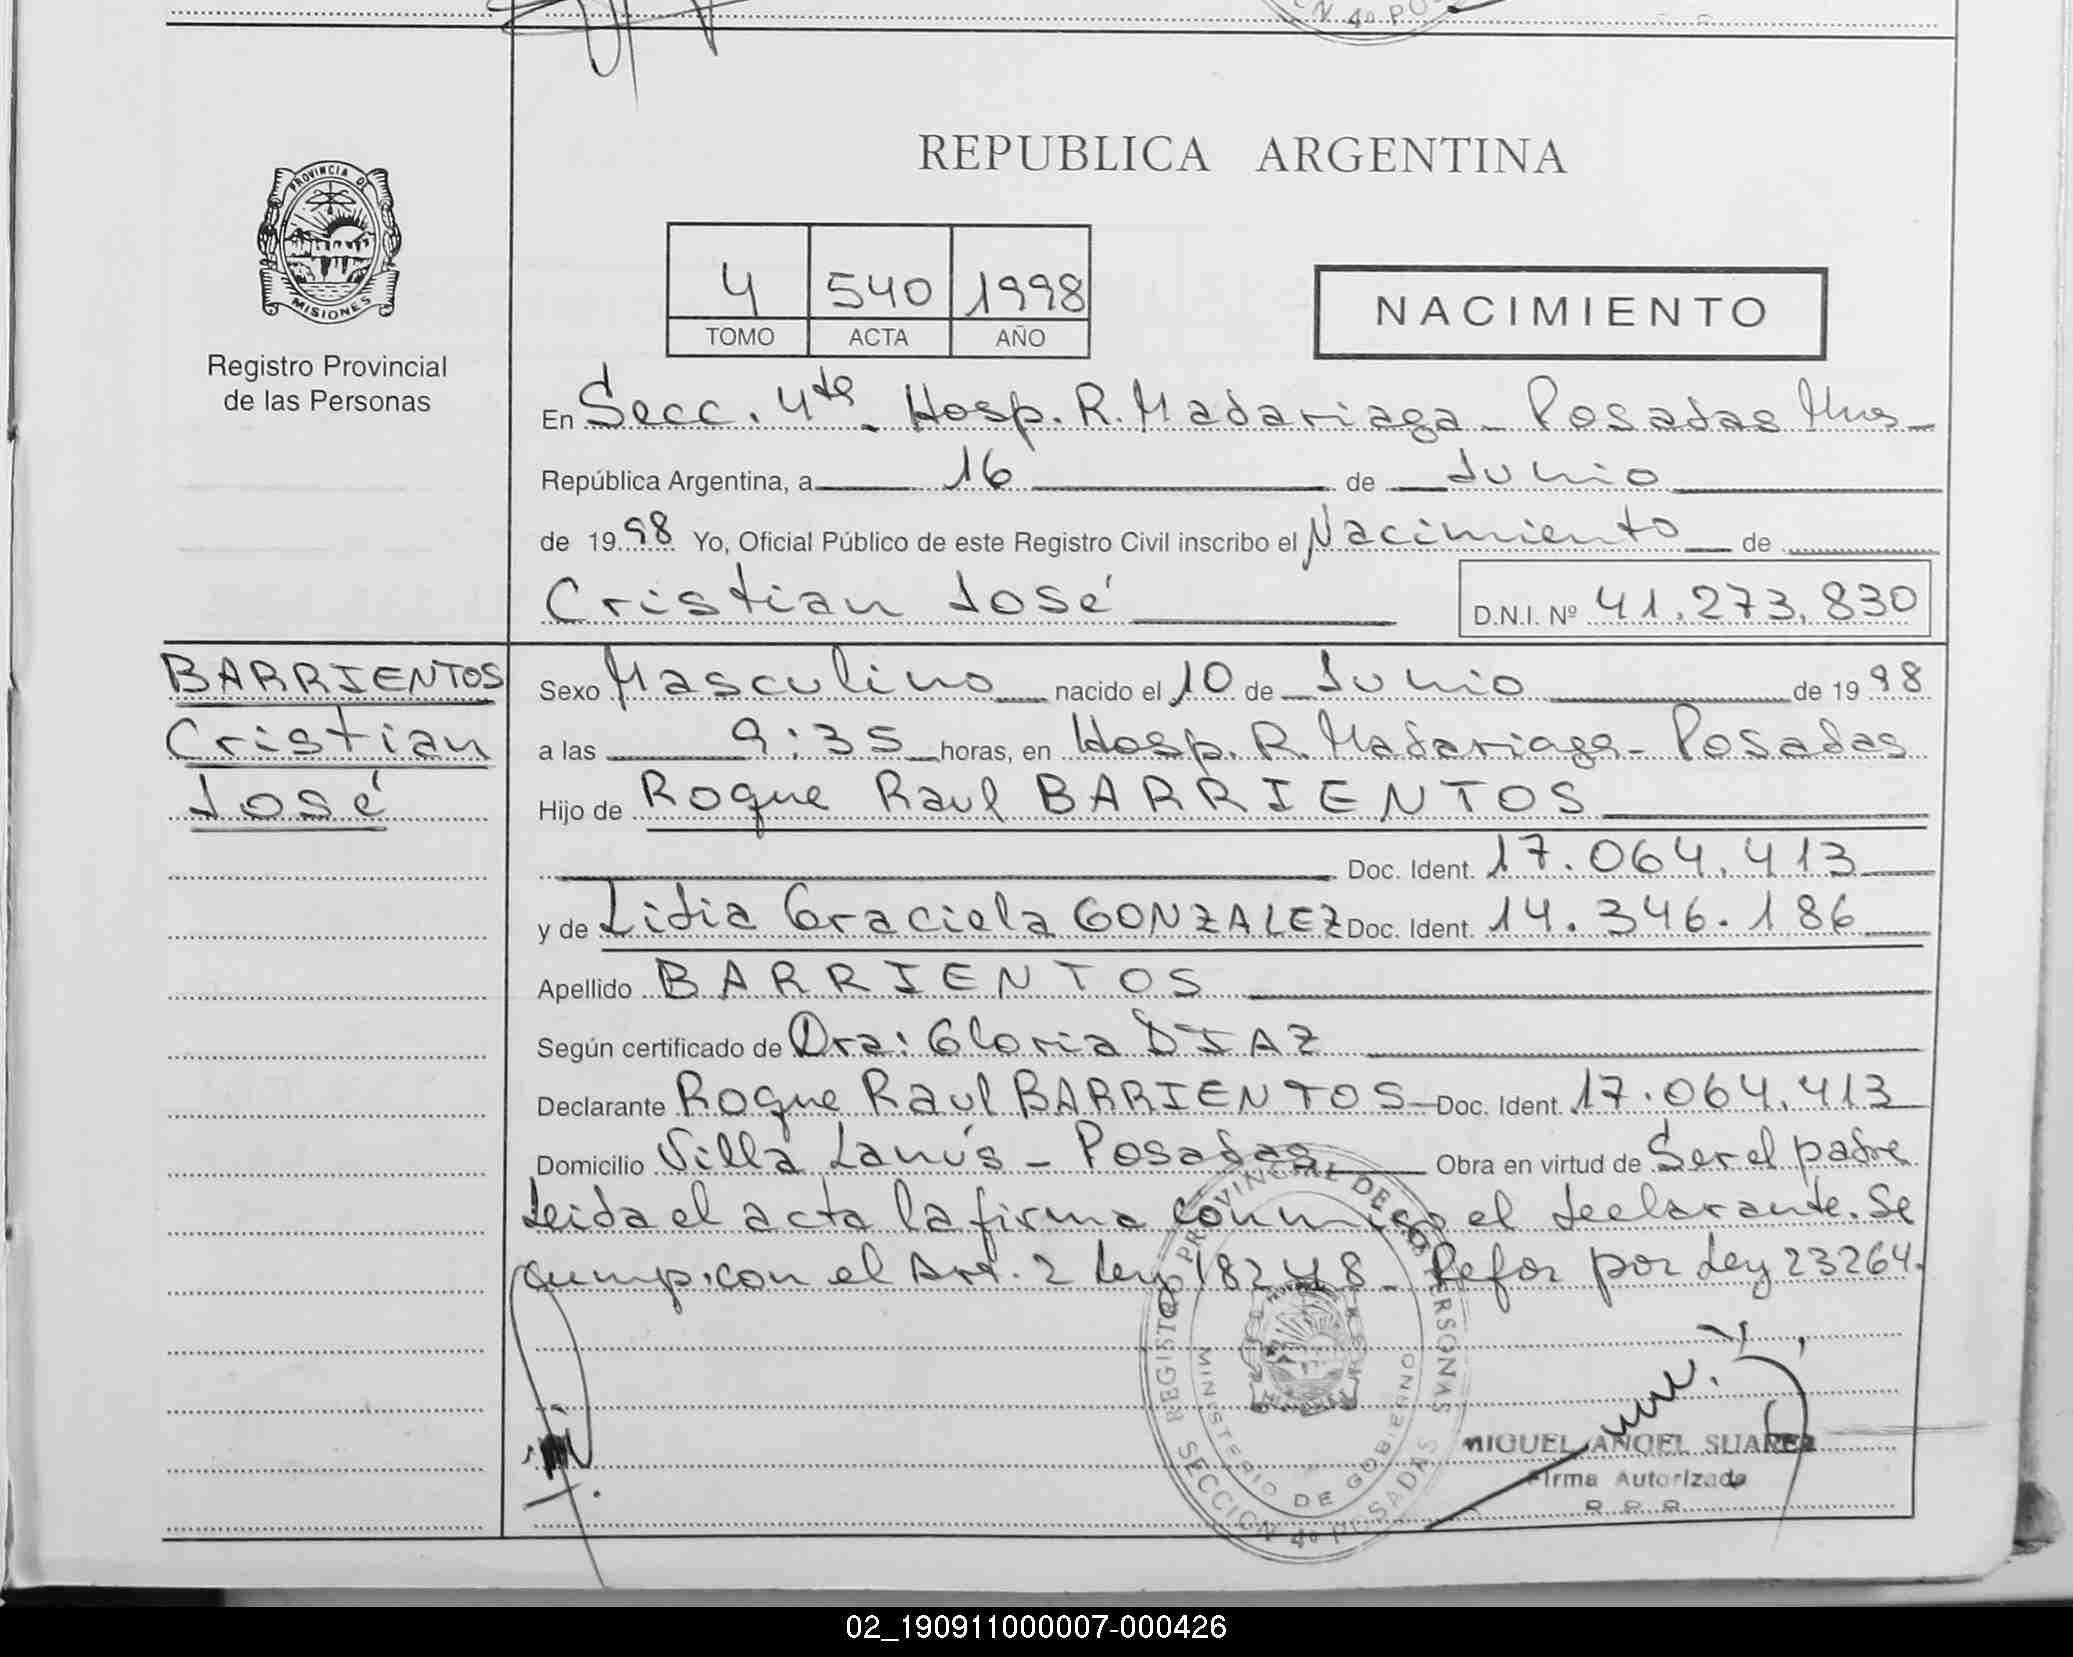 REPUBLICA ARGENTINA
PROVINCIA DE
MISIONES
Registro Provincial
de las Personas
4 540 1998
TOMO ACTA AÑO
NACIMIENTO
En Secc. 4ta - Hosp. R. Madariaga - Posadas Mnes -
República Argentina, a 16 de Junio
de 1998 Yo, Oficial Público de este Registro Civil inscribo el Nacimiento de
Cristian José D.N.I. Nº 41.273.830
BARRIENTOS
Cristian
José
Sexo Masculino nacido el 10 de Junio de 1998
a las 9:35 horas, en Hosp. R. Madariaga - Posadas
Hijo de Roque Raul BARRIENTOS
Doc. Ident. 17.064.413
y de Lidia Graciela GONZALEZ Doc. Ident. 14.346.186
Apellido BARRIENTOS
Según certificado de Dra: Gloria DIAZ
Declarante Roque Raul BARRIENTOS - Doc. Ident. 17.064.413
Domicilio Villa Lanús - Posadas Obra en virtud de Ser el padre
Leida el acta la firma conmigo el declarante. Se
cump. con el Art. 2 Ley 18248 - Refor por Ley 23264.
REGISTRO PROVINCIAL DE LAS PERSONAS
MINISTERIO DE GOBIERNO
SECCION 4º POSADAS
MIGUEL ANGEL SUAREZ
Firma Autorizada
02_190911000007-000426